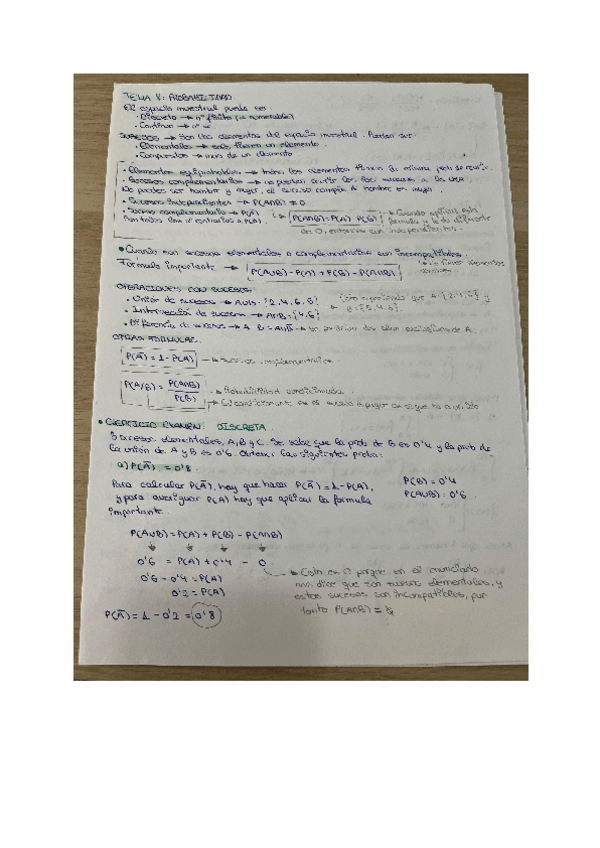 TEMA V: PROBABILIDAD
El espacio muestral puede ser:
· Discreto → nº finito (o numerable)
· Continuo → nº ∞
SUCESOS → Son los elementos del espacio muestral. Pueden ser:
· Elementales → solo tienen un elemento.
· Compuestos → más de un elemento.
· Elementos equiprobables → todos los elementos tienen la misma prob de
· Sucesos complementarios → no pueden los dos sucesos a la vez.
No puedes ser hombre y mujer, el suceso de hombre es mujer.
· Sucesos independientes → P(A∩B) ≠ 0
· Suceso complementario → P(Ā)
P(A∩B) = P(A) · P(B) → Cuando aplicas esta
fórmula y te da diferente
de 0, entonces son independientes.
• Cuando son sucesos elementales o complementarios son incompatibles.
Fórmula importante → P(A∪B) = P(A) + P(B) - P(A∩B)
OPERACIONES CON SUCESOS.
· Unión de sucesos → A∪B = {2, 4, 6, 5}
· Intersección de sucesos → A∩B = {4, 6}
que A = {2, 4, 6} y
B = {5, 4, 6}.
· Diferencia de sucesos →
OTRAS FÓRMULAS.
P(Ā) = 1 - P(A) → sucesos complementarios
P(A/B) = P(A∩B) / P(B) → Probabilidad condicionada.
• EJERCICIO EXAMEN: DISCRETA
3 sucesos elementales, A, B y C. Se sabe que la prob de B es 0'4 y la prob de
la unión de A y B es 0'6. Obtener las siguientes probs:
a) P(Ā) = 0'8
Para calcular P(Ā), hay que hacer P(Ā) = 1 - P(A),
y para averiguar P(A) hay que aplicar la fórmula
importante.
P(B) = 0'4
P(A∪B) = 0'6
P(A∪B) = P(A) + P(B) - P(A∩B)
0'6 = P(A) + 0'4 - 0
0'6 - 0'4 = P(A)
0'2 = P(A)
P(Ā) = 1 - 0'2 = 0'8
0 porque en el enunciado
nos dice que son sucesos elementales, y
estos sucesos son incompatibles, por
tanto P(A∩B) =